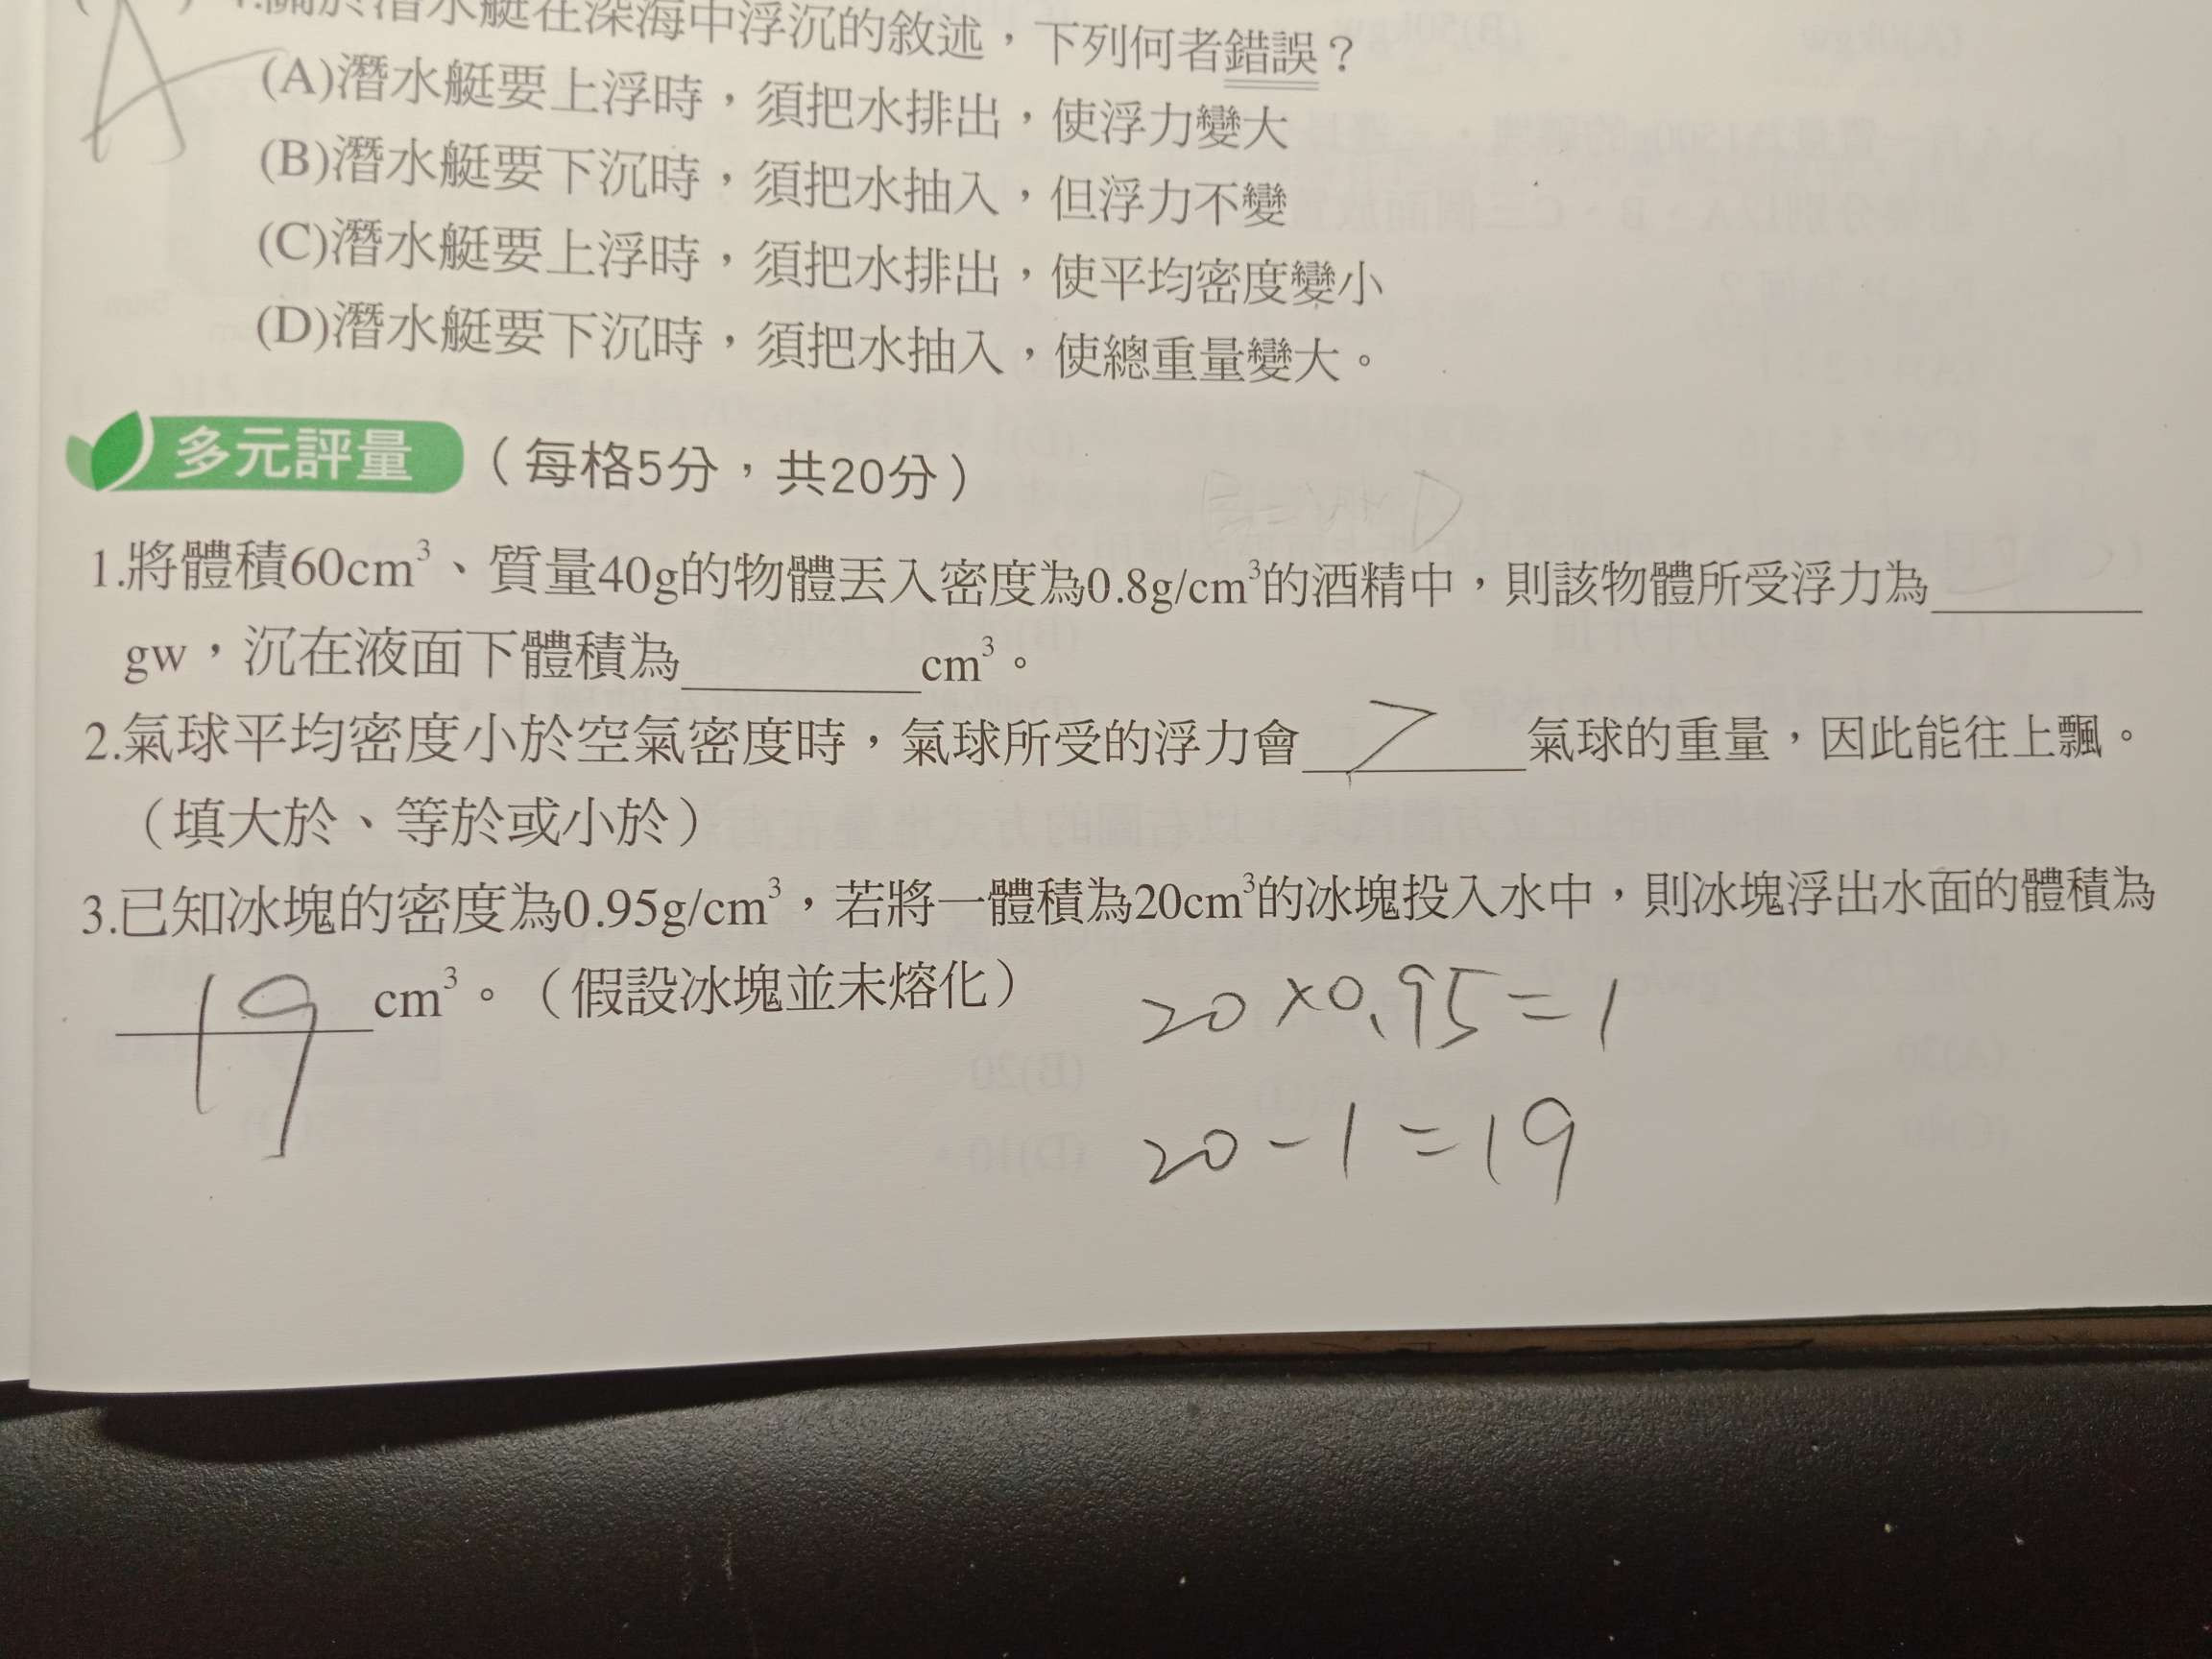 4.關於潛水艇在深海中浮沉的敘述，下列何者錯誤？
A
(A)潛水艇要上浮時，須把水排出，使浮力變大
(B)潛水艇要下沉時，須把水抽入，但浮力不變
(C)潛水艇要上浮時，須把水排出，使平均密度變小
(D)潛水艇要下沉時，須把水抽入，使總重量變大。
多元評量（每格5分，共20分）
1.將體積60cm³、質量40g的物體丟入密度為0.8g/cm³的酒精中，則該物體所受浮力為
gw，沉在液面下體積為 cm³。
2.氣球平均密度小於空氣密度時，氣球所受的浮力會 > 氣球的重量，因此能往上飄。
（填大於、等於或小於）
3.已知冰塊的密度為0.95g/cm³，若將一體積為20cm³的冰塊投入水中，則冰塊浮出水面的體積為
19 cm³。（假設冰塊並未熔化）
20×0.95=1
20-1=19